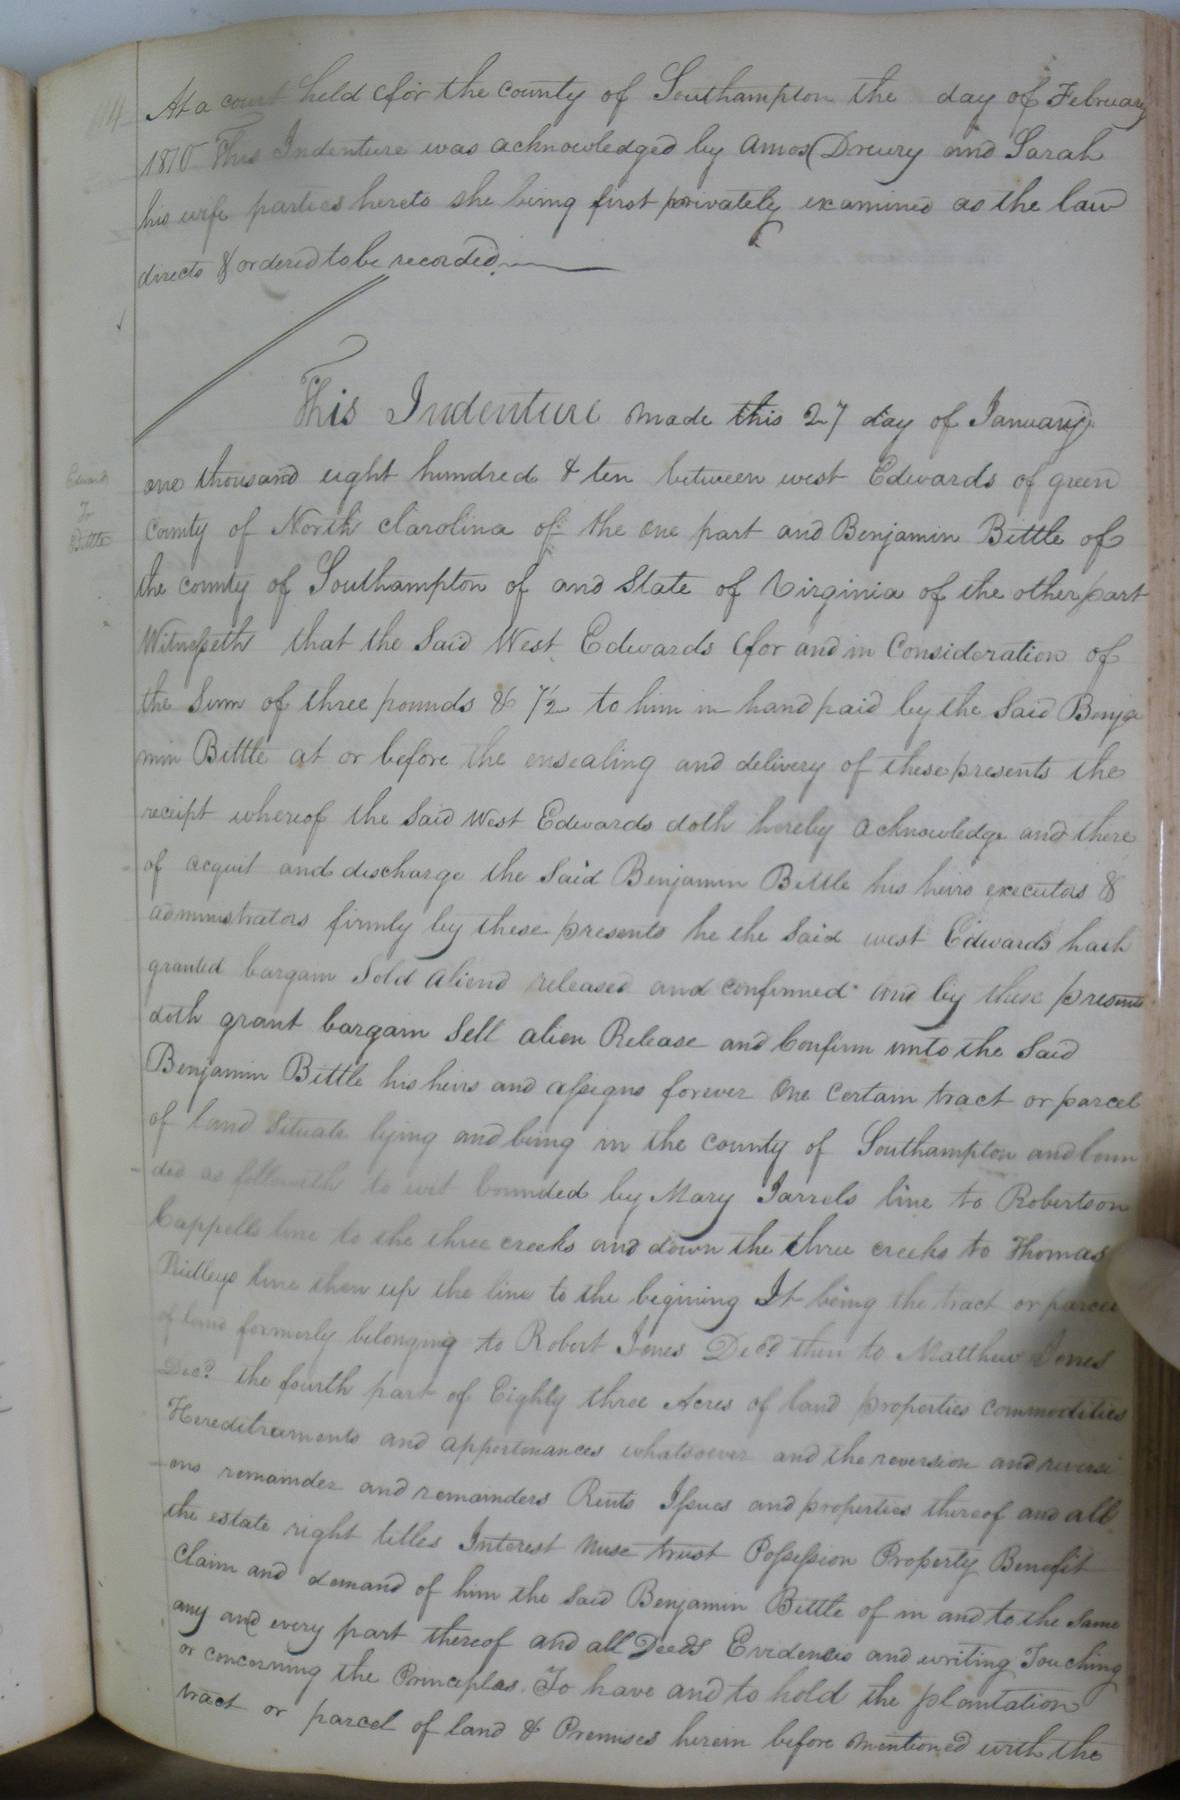 114
At a court held for the county of Southampton the day of February
1810 This Indenture was acknowledged by Amos Drewry and Sarah
his wife parties hereto she being first privately examined as the law
directs & ordered to be recorded
This Indenture made this 27 day of January
one thousand eight hundred & ten between west Edwards of green
Edwards
To
Bittle
County of North Carolina of the one part and Benjamin Bittle of
the county of Southampton of and State of Virginia of the other part
Witnesseth that the Said West Edwards for and in Consideration of
the Sum of three pounds & 7/2 to him in hand paid by the Said Benja
min Bittle at or before the ensealing and delivery of these presents the
receipt whereof the Said West Edwards doth hereby acknowledge and there
of acquit and discharge the Said Benjamin Bittle his heirs executors &
administrators firmly by these presents he the Said west Edwards hath
granted bargain Sold aliend released and confirmed and by these presents
doth grant bargain Sell alien Release and Confirm unto the Said
Benjamin Bittle his heirs and assigns forever One certain tract or parcel
of land Situate lying and being in the county of Southampton and boun
ded as followeth to wit bounded by Mary Jarrels line to Robertson
Cappells line to the three creeks and down the three creeks to Thomas
Ridleys line then up the line to the begining It being the tract or parcel
of land formerly belonging to Robert Jones Decd then to Matthew Jones
Decd the fourth part of Eighty three Acres of land properties commodities
Hereditraments and appertenances whatsoever and the reversion and reversi
ons remainder and remainders Rents Issues and properties thereof and all
the estate right titles Interest nuse trust Possession Property Benefit
Claim and demand of him the Said Benjamin Bittle of in and to the Same
any and every part thereof and all Deeds Evidences and writing Touching
or concerning the Principlas. To have and to hold the plantation
tract or parcel of land & Premises herein before mentioned with the